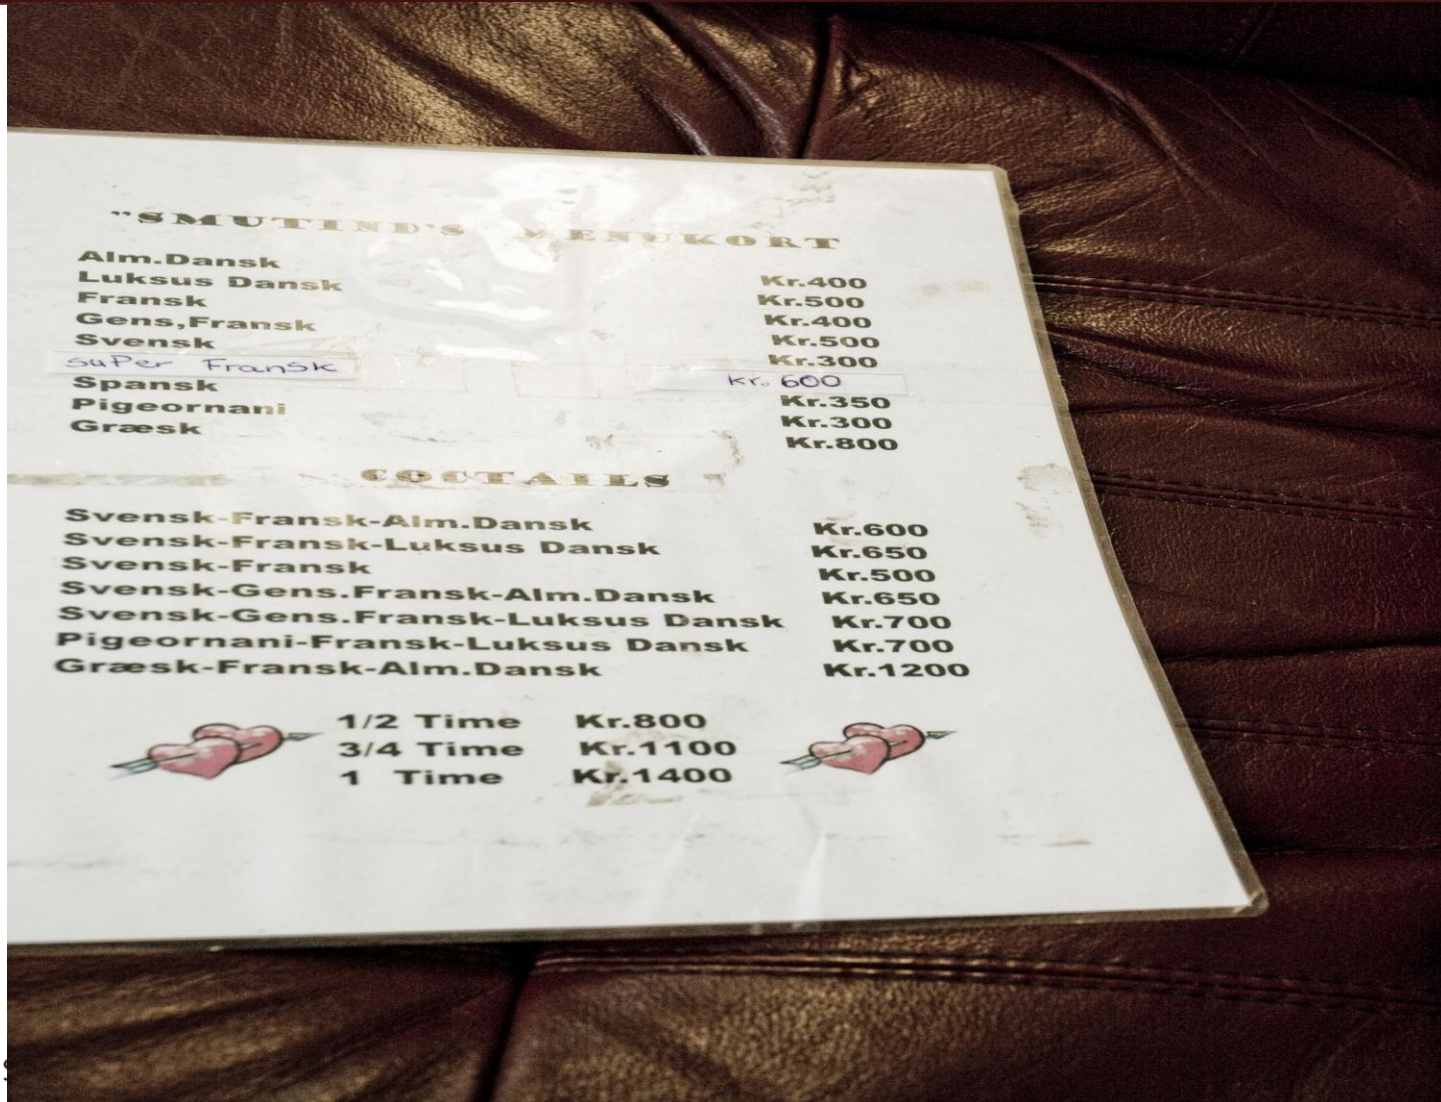 "SMUTIND'S MENUKORT
Alm.Dansk Kr.400
Luksus Dansk Kr.500
Fransk Kr.400
Gens,Fransk Kr.500
Svensk Kr.300
SuPer Fransk Kr. 600
Spansk Kr.350
Pigeornani Kr.300
Græsk Kr.800
COCTAILS
Svensk-Fransk-Alm.Dansk Kr.600
Svensk-Fransk-Luksus Dansk Kr.650
Svensk-Fransk Kr.500
Svensk-Gens.Fransk-Alm.Dansk Kr.650
Svensk-Gens.Fransk-Luksus Dansk Kr.700
Pigeornani-Fransk-Luksus Dansk Kr.700
Græsk-Fransk-Alm.Dansk Kr.1200
1/2 Time Kr.800
3/4 Time Kr.1100
1 Time Kr.1400